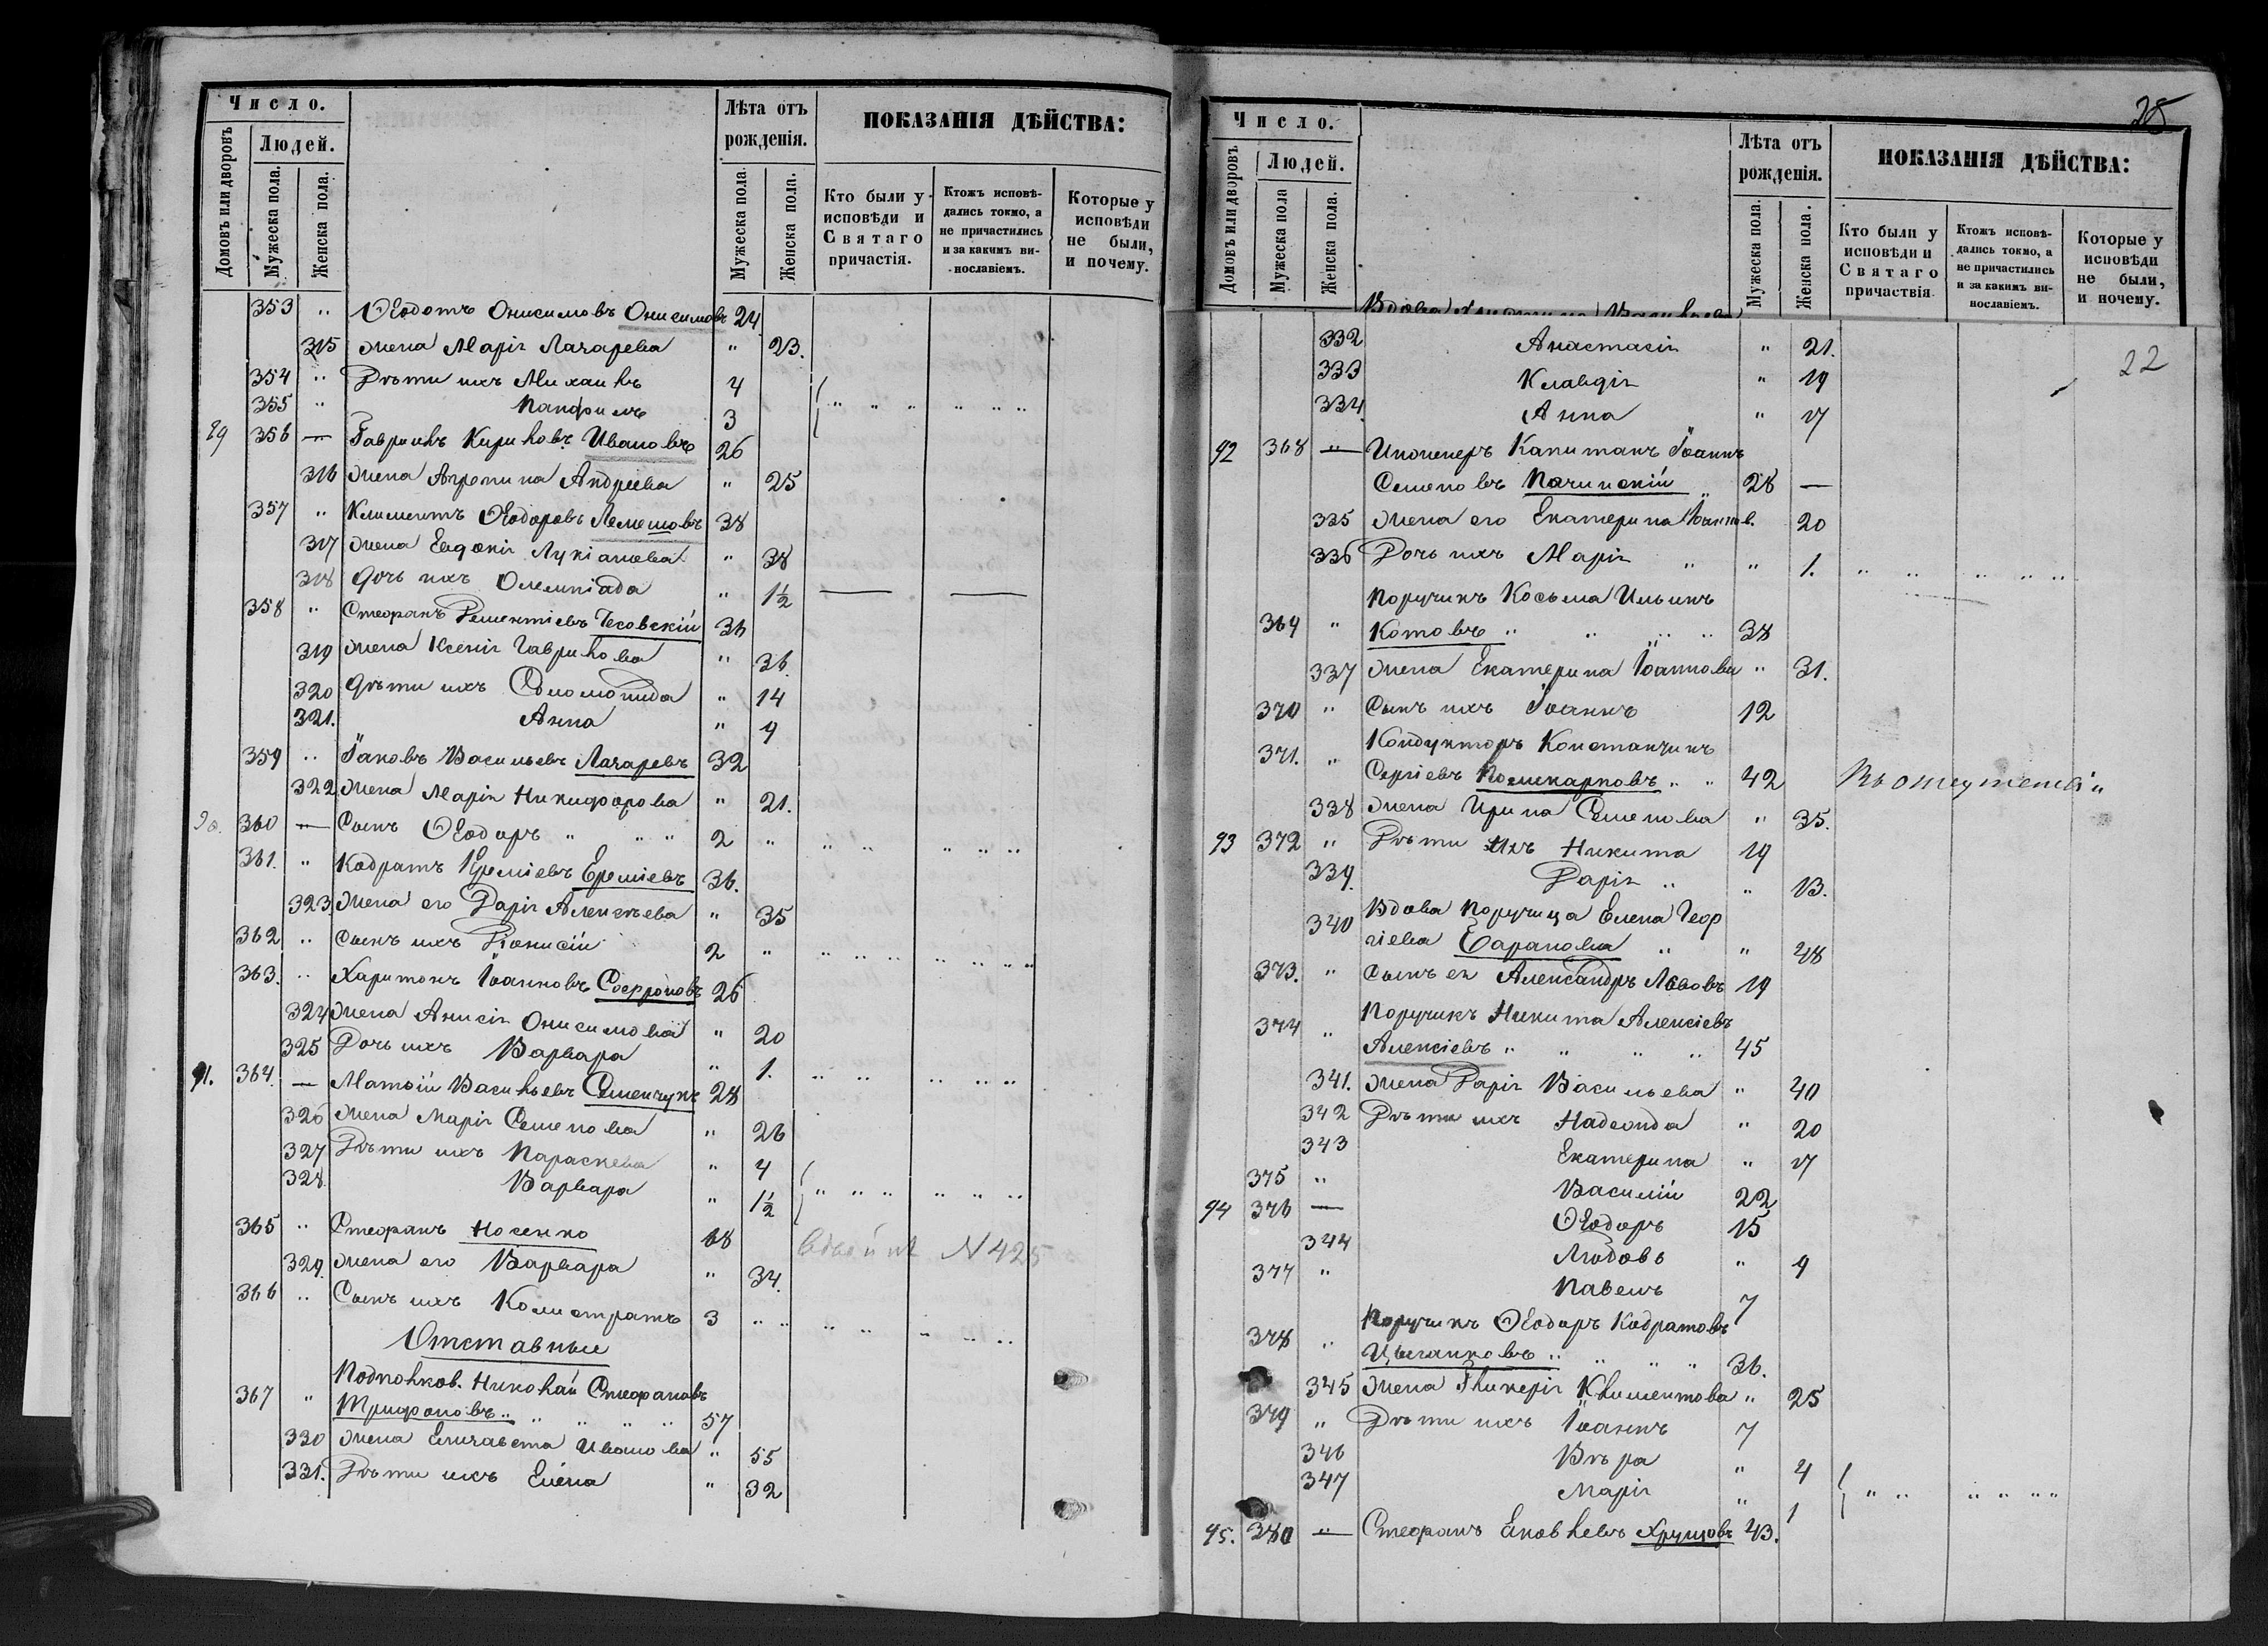 Число.
Домовъ или дворовъ
Людей.
Мужеска пола.
Женска пола.
Лѣта отъ рожденія.
Мужеска пола.
Женска пола.
ПОКАЗАНІЯ ДѢЙСТВА:
Кто были у исповѣди и Святаго причастія.
Ктожъ исповѣдались токмо, а не причастились и за какимъ винославіемъ.
Которые у исповѣди не были, и почему.
353 " Ѳеодотъ Онисимовъ Онисимовъ 24
315 жена Марія Лазарева " 23.
354 " Дѣти ихъ Михаилъ 4
355 " Памфилъ 3 " " " " " "
89 356 — Гавриилъ Кириловъ Ивановъ 26
316 жена Агрепина Андреева " 25
357 " Климентъ Ѳеодоровъ Лемешовъ 38
317 жена Евдокія Лукіанова " 38
318 дочь ихъ Олемпіада " 1½ — —
358 " Стефанъ Дементіевъ Чесовскій 36
319 жена Ксенія Гаврилова " 36.
320 дѣти ихъ Соломонида " 14
321. Анна " 9
359 " Іаковъ Васильевъ Лазаревъ 32
322 жена Марія Никифорова " 21.
90. 360 — Сынъ Ѳеодоръ " " " 2 " " " " " "
361. " Кодратъ Ереміевъ Ереміевъ 36.
323 жена его Дарія Алексѣева " 35
362 " сынъ ихъ Діонисій 2 " " " " " " " "
363. " Харитонъ Іоанновъ Софроновъ 26
324 жена Анисія Онисимова " 20
325 Дочь ихъ Варвара " 1. " " " " "
91. 364. — Матѳій Васильевъ Семенчукъ 28
326 жена Марія Семенова " 26
327 Дѣти ихъ Параскева " 4
328. Варвара " 1½ " " " " " "
365 " Стефанъ Носенко 68 N 425
329. жена его Варвара " 34.
366 " Сынъ ихъ Калистратъ 3 " " " " " " "
Отставныи
Подполков. Николай Стефановъ
367 " Трифоновъ " " " " " 57
330 жена Елизавета Иванова " 55
331. Дѣти ихъ Елена " 32
28
Число.
Домовъ или дворовъ
Людей.
Мужеска пола
Женска пола.
Лѣта отъ рожденія.
Мужеска пола.
Женска пола.
ПОКАЗАНІЯ ДѢЙСТВА:
Кто были у исповѣди и Святаго причаствія
Ктожъ исповѣдались токмо, а не причастились и за какимъ винославіемъ.
Которые у исповѣди не были, и почему.
22
332 Анастасія " 21.
333 Клавдія " 19
334. Анна " 17
92 368 " — Инженеръ Капитанъ Іоаннъ
Семеновъ Пачинскій " 28 —
335 жена его Екатерина Іоаннов. 20
336 Дочь ихъ Марія " " 1. " " " " "
Поручикъ Косьма Ильинъ
369 " Котовъ " " " " 38
337 жена Екатерина Іоаннова " 31.
370 " Сынъ ихъ Іоаннъ 12
371. " Кондукторъ Константинъ
Сергіевъ Поликарповъ " " 42 Въ отлученіи
338 жена Ирина Семенова " 35.
93 372 " Дѣти ихъ Никита 19
339. Дарія " " 13.
340 Вдова Поручица Елена Геор
гіева Баранова " " 48
373. " сынъ ея Александръ Львовъ 19
374 " Поручикъ Никита Алексіевъ
Алексіевъ " " " " 45
341. жена Дарія Васильева " 40
342 Дѣти ихъ Надежда " 20
343 Екатерина " 17
375 " Василій 22
94 376 — Ѳеодоръ 15
344 Любовь " 9
377 " Павелъ 7
378 " Поручикъ Ѳеодоръ Кодратовъ
Цыганковъ " " " " 36.
345 жена Гликерія Климентова " 25
379 " Дѣти ихъ Іоаннъ 7
346 Вѣра " 4
347 Марія " 1 " " " " " "
95. 380 " — Стефанъ Яковлевъ Хрущовъ 43.